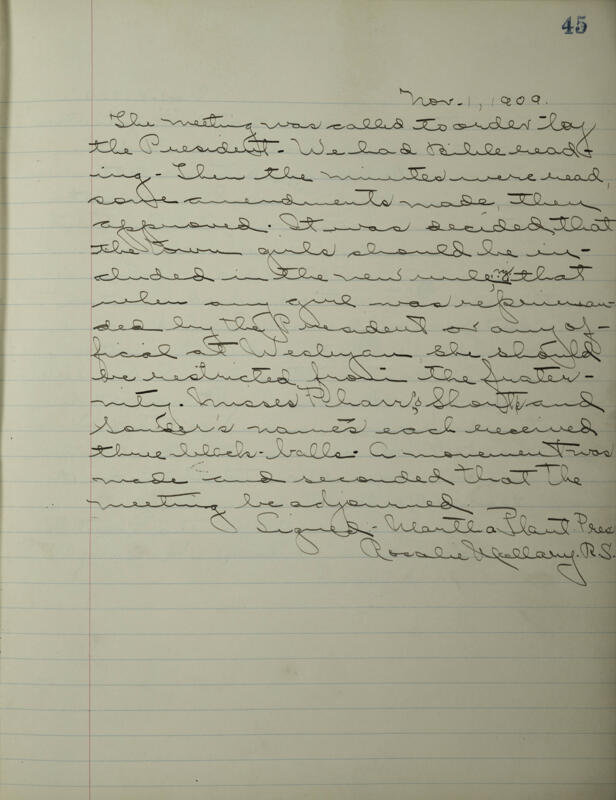 45
Nov. 1, 1909.
The meeting was called to order by
the President - We had Bible read-
ing - Then the minutes were read,
some amendments made, then
approved. It was decided that
the town girls should be in-
cluded in the new rule, that
when any girl was repriman-
ded by the President or any of-
ficial at Wesleyan she should
be restricted from the frater-
nity. Misses Pharr's, and
names each received
three black-balls. A movement was
made and seconded that the
meeting be adjourned
Signed - Martha Plant. Pres
Rosalie Mallary. R.S.